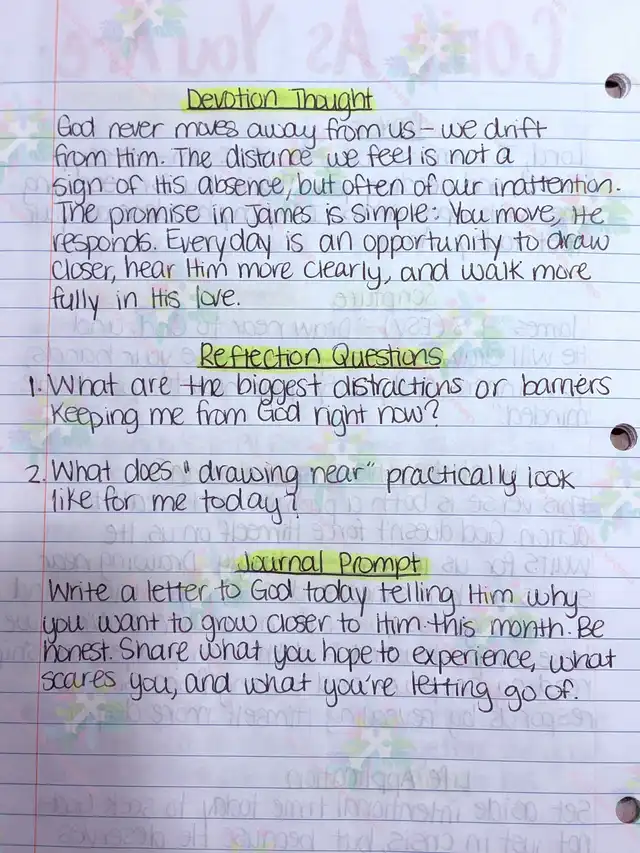 Devotion Thought
God never moves away from us - we drift
from Him. The distance we feel is not a
sign of His absence, but often of our inattention.
The promise in James is simple: You move, He
responds. Everyday is an opportunity to draw
closer, hear Him more clearly, and walk more
fully in His love.
Reflection Questions
1. What are the biggest distractions or barriers
keeping me from God right now?
2. What does "drawing near" practically look
like for me today?
Journal Prompt
Write a letter to God today telling Him why
you want to grow closer to Him this month. Be
honest. Share what you hope to experience, what
scares you, and what you're letting go of.